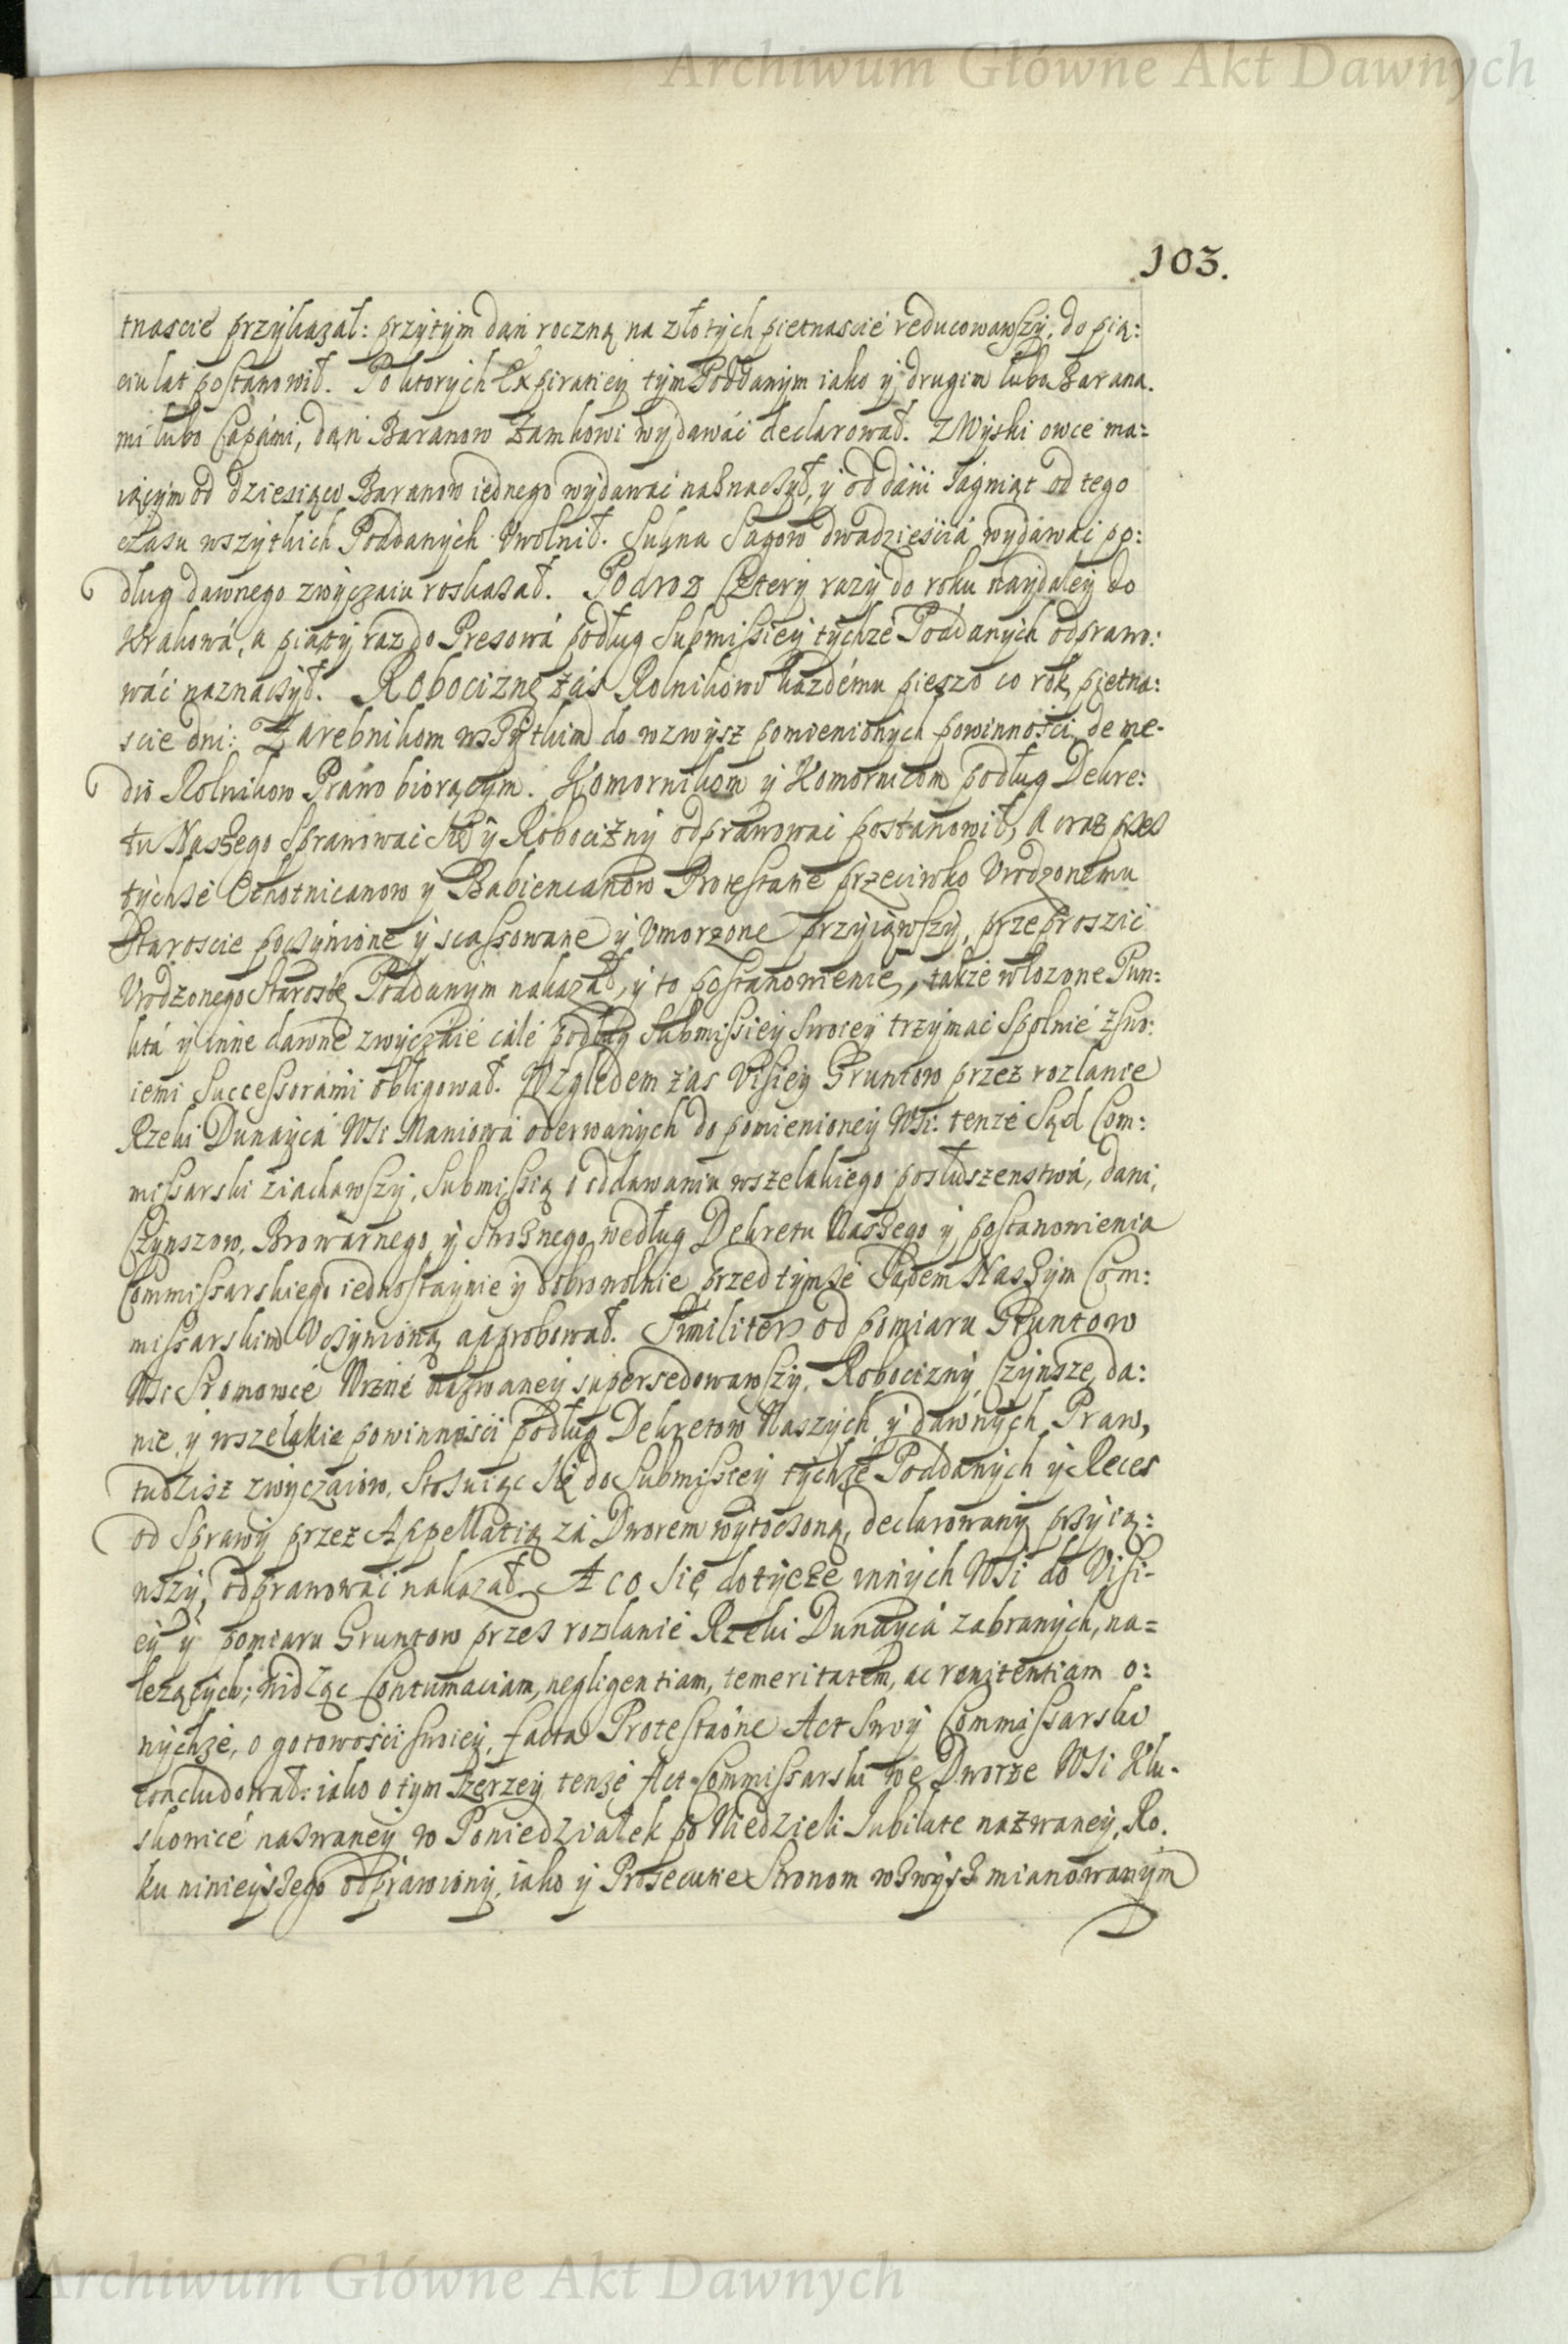 Archiwum Główne Akt Dawnych
103.
tnascie przykazał: przytym dań roczną na złotych pietnascie reducowawszy, do pią:
ciu lat postanowił. Po ktorych Expiratiey tym Poddanym iako y drugim lubo Barana.
mi lubo Capámi, dań Baranow Zamkowi wydawáć declarował. Z Wyski owce ma=
iącym od dziesiąciu Baranow iednego wydawać naznaczył, y od dáni Iagniąt od tego
czasu wszytkich Poddanych Vwolnił. Sukna Sagow dwadzieścia wydáwać po:
dług dawnego zwyczaiu roskazał. Podroz Cztery razy do roku naydaley do
Krakowá, a piąty raz do Presowá podług Submissiey tychże Poddanych odprawo:
wáć naznaczył. Robociznę záś Rolnikowi każdému pieszo co rok piętna:
scie dni: Zarebnikom wszytkim do wzwysz pomienionych powinności de me-
dio Rolnikow Práwo biorącym. Komornikom y Komornicom podług Dekre:
tu Naszego Sprawowac się y Robocizny odprawowac postanowił, A oraz przez
tychże Ochotnicanow y Babiencanow Protestatie przeciwko Vrodzonemu
Staroscie poczynione y scassowane y Vmorzone przyiąwszy, przeprosić
Vrodzonego Starostę Poddanym nakazał, y to postanowienie, także włozone Pun:
ktá y inne dawne zwyczáie cále podług Submissiey Swoiey trzymac Spolnie z Swo:
iemi Successorámi obligował. Względem zas Visiey Gruntow przez rozlanie
Rzeki Dunayca Wsi Maniowá oderwanych do pomienioney Wsi: tenże Sąd Com:
missarski ziachawszy, Submissią o oddawaniu wszelakiego posłuszenstwá, dani,
Czynszow, Browárnego y Stroznego, według Dekretu Naszego y postanowienia
Commissarskiego iednostaynie y dobrowolnie przed tymże Sądem Naszym Com:
missarskim Vczynioną approbował. Similiter od pomiaru Gruntow
Wsi Sromowce Niżne nazwaney supersedowawszy, Robocizny, Czynsze, da:
nie, y wszelakie powinności podług Dekretow Naszych y dawnych Praw,
tudzisz zwyczaiow, Stosuiąc się do Submissiey tychże Poddanych y Reces
od Sprawy przez Appellatią zá Dworem wytoczoną, declarowany przyią:
wszy, odprawowáć nakazał. A co się dotycze innych Wsi do Visi-
ey y pomiaru Gruntow przez rozlanie Rzeki Dunayca zabranych, na=
lezących; widząc Contumaciam, negligentiam, temeritatem, ac renitentiam o:
nychże, o gotowości swoiey, facta Protestaóne Act Swoy Commissarski
concludował: iako o tym szerzey tenże Act Commissarski we Dworze Wsi Klu-
skowice nazwaney w Poniedziałek po Niedzieli Iubilate nazwaney, Ro.
ku ninieyszego odprawiony, iako y Prosecutie Stronom wzwysz mianowanym
Archiwum Główne Akt Dawnych